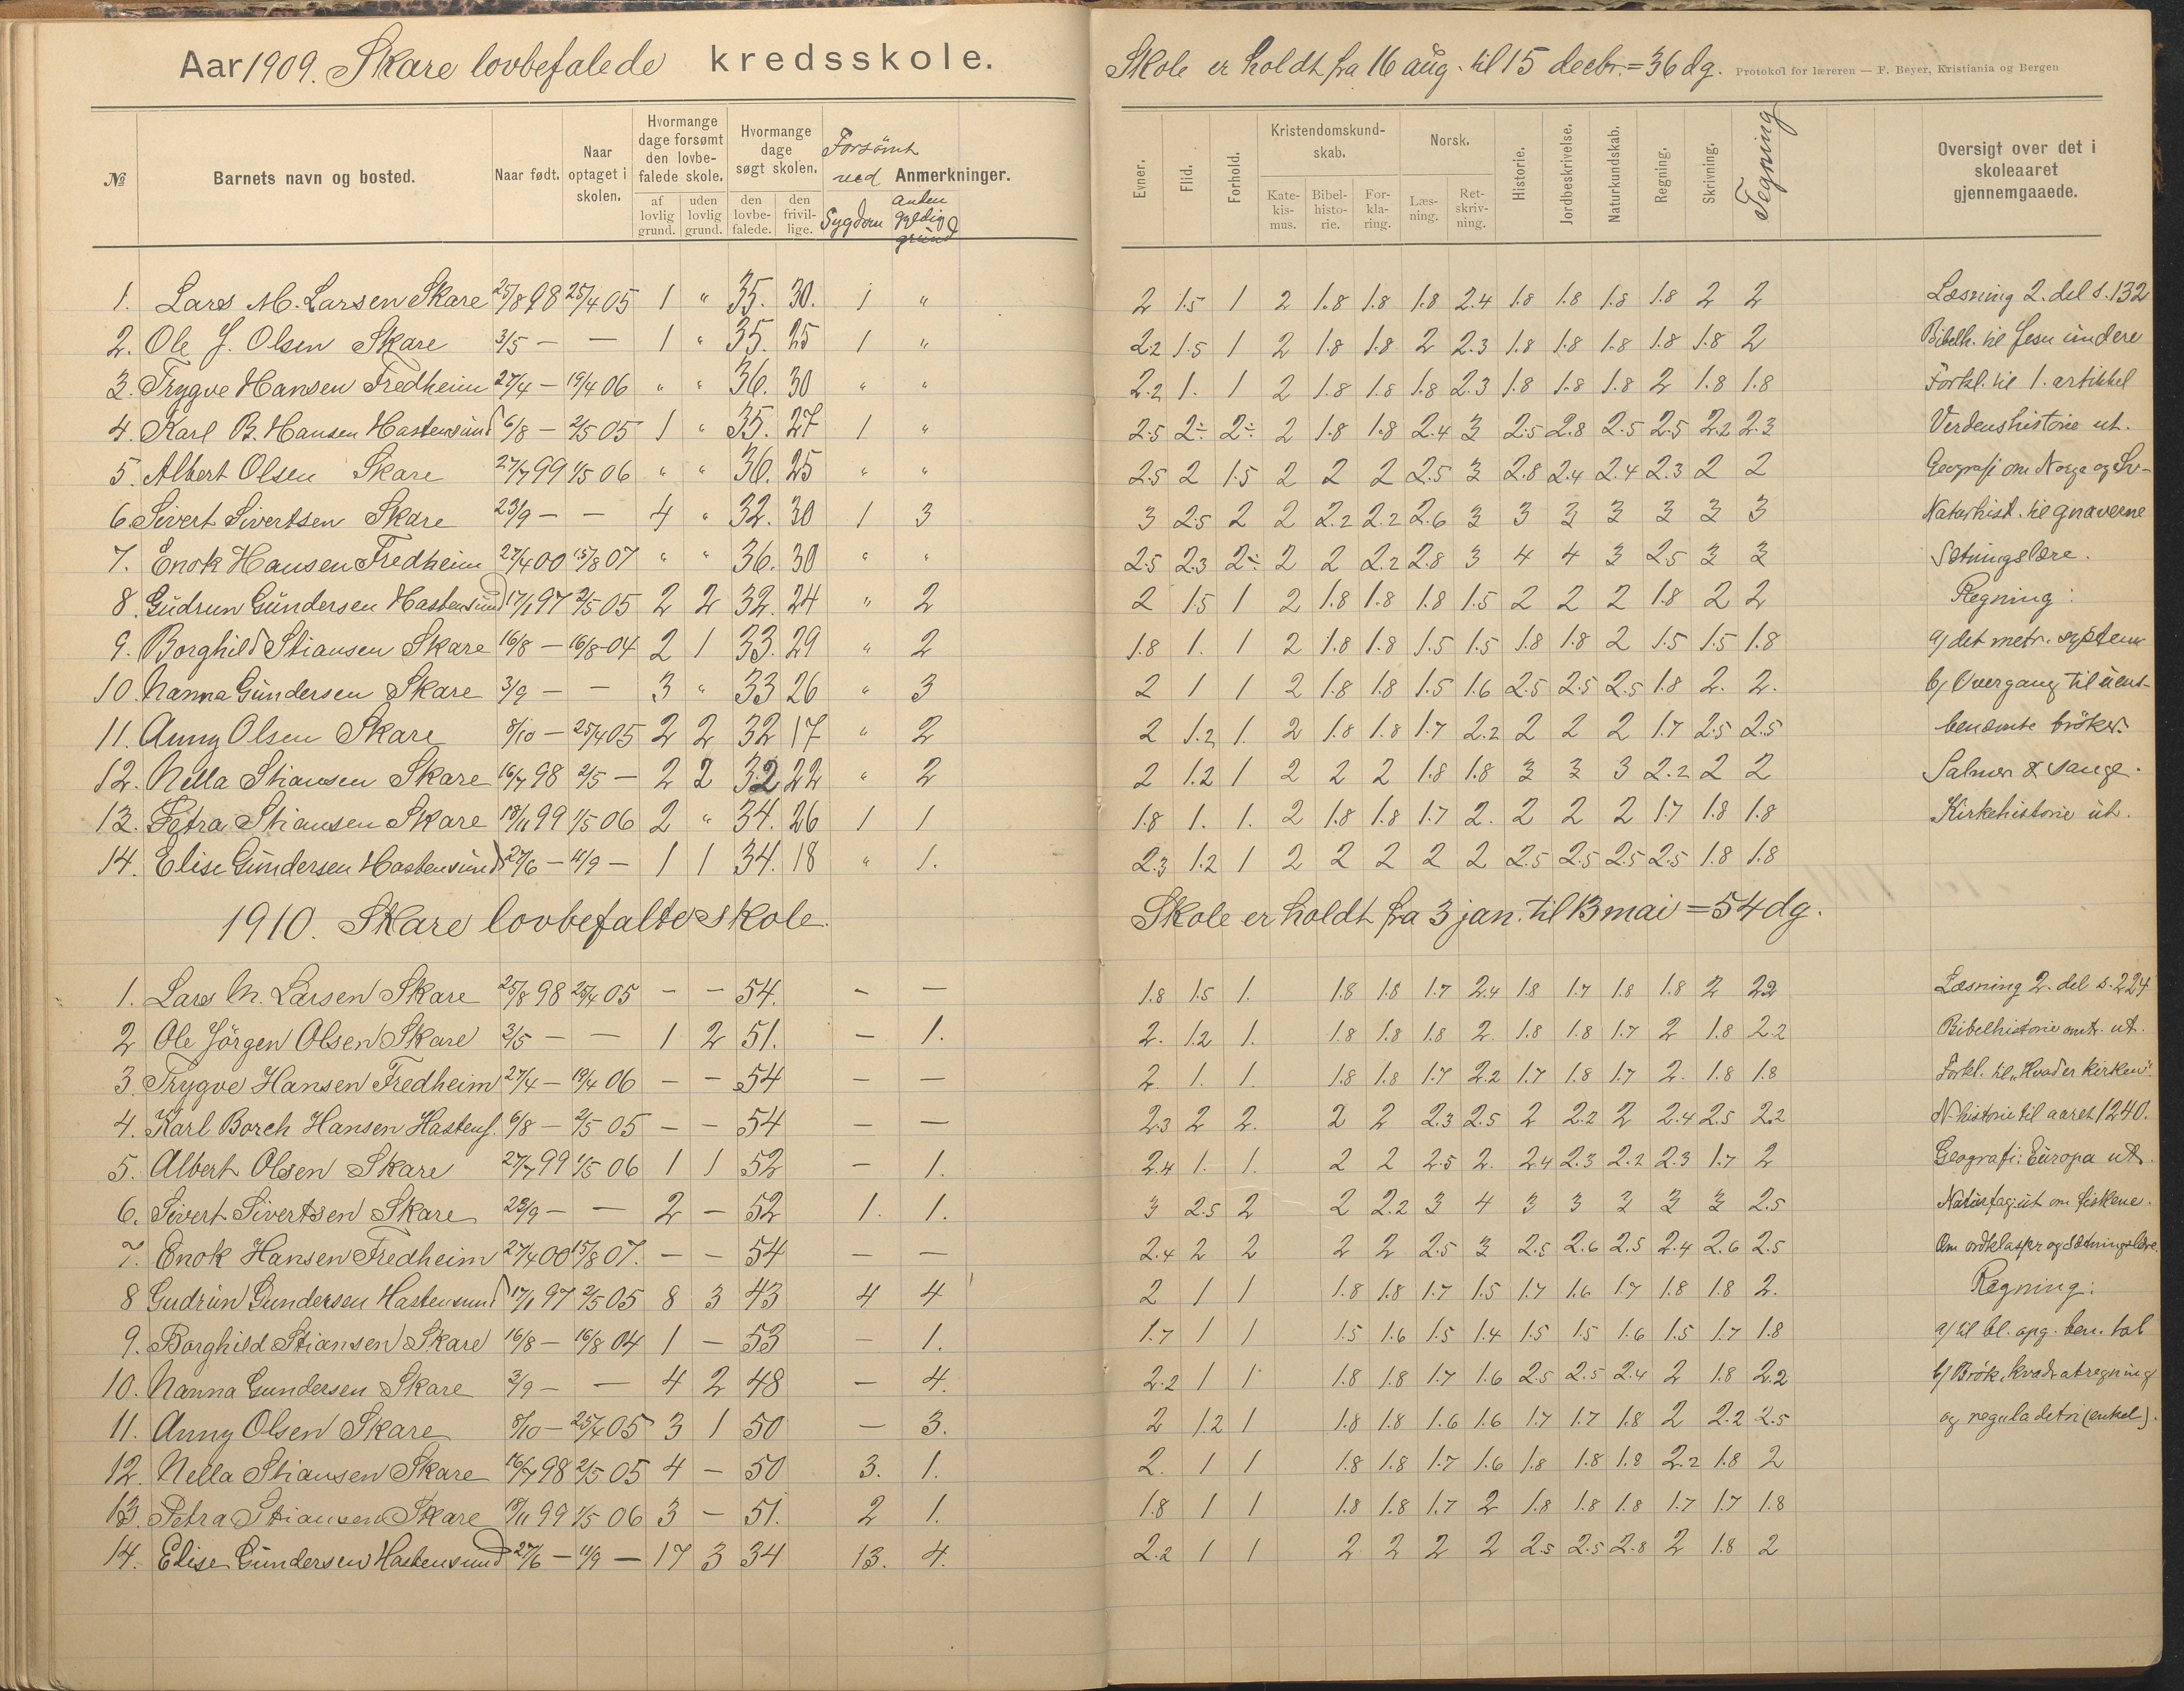 Aar 1909. Skare lovbefalede kredsskole.
№ Barnets navn og bosted. Naar født. Naar optaget i skolen. Hvormange dage forsømt den lovbefalede skole. af lovlig grund. uden lovlig grund. Hvormange dage søgt skolen. den lovbefalede. den frivillige. Forsömt ved Sygdom anden gyldig grund Anmerkninger.
1. Lars M. Larsen Skare 25/8 98 25/4 05 1 " 35. 30. 1 "
2. Ole J. Olsen Skare 3/5 — — 1 " 35. 25 1 "
3. Trygve Hansen Fredheim 27/4 — 19/4 06 " " 36. 30 " "
4. Karl B. Hansen Hastensund 6/8 — 2/5 05 1 " 35. 27 1 "
5. Albert Olsen Skare 27/7 99 1/5 06 " " 36. 25 " "
6. Sivert Sivertsen Skare 23/9 — — 4 " 32. 30 1 3
7. Enok Hansen Fredheim 27/4 00 15/8 07 " " 36. 30 " "
8. Gudrun Gundersen Hastensund 17/1 97 2/5 05 2 2 32. 24 " 2
9. Borghild Stiansen Skare 16/8 — 16/8 04 2 1 33. 29 " 2
10. Nanna Gundersen Skare 3/9 — — 3 " 33 26 " 3
11. Anny Olsen Skare 8/10 — 25/4 05 2 2 32 17 " 2
12. Nella Stiansen Skare 16/7 98 2/5 — 2 2 32 22 " 2
13. Petra Stiansen Skare 18/11 99 1/5 06 2 " 34. 26 1 1
14. Elise Gundersen Hastensund 27/6 — 11/9 — 1 1 34. 18 " 1.
1910. Skare lovbefalte skole.
1. Lars M. Larsen Skare 25/8 98 25/4 05 — — 54. — —
2 Ole Jörgen Olsen Skare 3/5 — — 1 2 51. — 1.
3. Trygve Hansen Fredheim 27/4 — 19/4 06 — — 54 — —
4. Karl Borch Hansen Hastens. 6/8 — 2/5 05 — — 54 — —
5. Albert Olsen Skare 27/7 99 1/5 06 1 1 52 — 1.
6. Sivert Sivertsen Skare 23/9 — — 2 — 52 1. 1.
7. Enok Hansen Fredheim 27/4 00 15/8 07. — — 54 — —
8 Gudrun Gundersen Hastensund 17/1 97 2/5 05 8 3 43 4 4
9. Borghild Stiansen Skare 16/8 — 16/8 04 1 — 53 — 1.
10. Nanna Gundersen Skare 3/9 — — 4 2 48 — 4.
11. Anny Olsen Skare 8/10 — 25/4 05 3 1 50 — 3.
12. Nella Stiansen Skare 16/7 98 2/5 05 4 — 50 3. 1.
13. Petra Stiansen Skare 18/11 99 1/5 06 3 — 51. 2 1.
14. Elise Gundersen Hastensund 27/6 — 11/9 — 17 3 34 13. 4.
Skole er holdt fra 16 aug. til 15 decbr. = 36 dg. Protokol for læreren — F. Beyer, Kristiania og Bergen
Evner. Flid. Forhold. Kristendomskundskab. Katekismus. Bibelhistorie. Forklaring. Norsk. Læsning. Retskrivning. Historie. Jordbeskrivelse. Naturkundskab. Regning. Skrivning. Tegning Oversigt over det i skoleaaret gjennemgaaede.
2 1.5 1 2 1.8 1.8 1.8 2.4 1.8 1.8 1.8 1.8 2 2 Læsning 2. del s. 132
2.2 1.5 1 2 1.8 1.8 2 2.3 1.8 1.8 1.8 1.8 1.8 2 Bibelh. til Jesu undere
2.2 1. 1 2 1.8 1.8 1.8 2.3 1.8 1.8 1.8 2 1.8 1.8 Forkl. til 1. artikkel
2.5 2÷ 2÷ 2 1.8 1.8 2.4 3 2.5 2.8 2.5 2.5 2.2 2.3 Verdenshistorie ut.
2.5 2 1.5 2 2 2 2.5 3 2.8 2.4 2.4 2.3 2 2 Geografi om Norge og Sv-
3 2.5 2 2 2.2 2.2 2.6 3 3 3 3 3 3 3 Naturhist. til gnaverne
2.5 2.3 2÷ 2 2 2.2 2.8 3 4 4 3 2.5 3 3 Sætningslære.
2 1.5 1 2 1.8 1.8 1.8 1.5 2 2 2 1.8 2 2 Regning:
1.8 1. 1 2 1.8 1.8 1.5 1.5 1.8 1.8 2 1.5 1.5 1.8 a/ det metr. system
2 1 1 2 1.8 1.8 1.5 1.6 2.5 2.5 2.5 1.8 2. 2. b/ Overgang til uens-
2 1.2 1. 2 1.8 1.8 1.7 2.2 2 2 2 1.7 2.5 2.5 benævnte bröker.
2 1.2 1 2 2 2 1.8 1.8 3 3 3 2.2 2 2 Salmer & sange.
1.8 1. 1. 2 1.8 1.8 1.7 2. 2 2 2 1.7 1.8 1.8 Kirkehistorie ut.
2.3 1.2 1 2 2 2 2 2 2.5 2.5 2.5 2.5 1.8 1.8
Skole er holdt fra 3 jan. til 13 mai = 54 dg.
1.8 1.5 1. 1.8 1.8 1.7 2.4 1.8 1.7 1.8 1.8 2 2.2 Læsning 2. del s. 224
2. 1.2 1. 1.8 1.8 1.8 2 1.8 1.8 1.7 2 1.8 2.2 Bibelhistorie omtr. ut.
2 1. 1. 1.8 1.8 1.7 2.2 1.7 1.8 1.7 2. 1.8 1.8 Forkl. til „Hvad er kirken".
2.3 2 2. 2 2 2.3 2.5 2 2.2 2 2.4 2.5 2.2 N. historie til aaret 1240.
2.4 1. 1. 2 2 2.5 2. 2.4 2.3 2.2 2.3 1.7 2 Geografi: Europa ut.
3 2.5 2 2 2.2 3 4 3 3 3 3 3 2.5 Naturfag: ut om fiskene.
2.4 2 2 2 2 2.5 3 2.5 2.6 2.5 2.4 2.6 2.5 Om ordklasser og Sætningslære.
2 1 1 1.8 1.8 1.7 1.5 1.7 1.6 1.7 1.8 1.8 2. Regning:
1.7 1 1 1.5 1.6 1.5 1.4 1.5 1.5 1.6 1.5 1.7 1.8 a/ til bl. opg. ben. tal
2.2 1 1 1.8 1.8 1.7 1.6 2.5 2.5 2.4 2 1.8 2.2 b/ Brök, kvadratregning
2 1.2 1 1.8 1.8 1.6 1.6 1.7 1.7 1.8 2 2.2 2.5 og regula detri (enkel).
2. 1 1 1.8 1.8 1.7 1.6 1.8 1.8 1.8 2.2 1.8 2
1.8 1 1 1.8 1.8 1.7 2 1.8 1.8 1.8 1.7 1.7 1.8
2.2 1 1 2 2 2 2 2.5 2.5 2.8 2 1.8 2